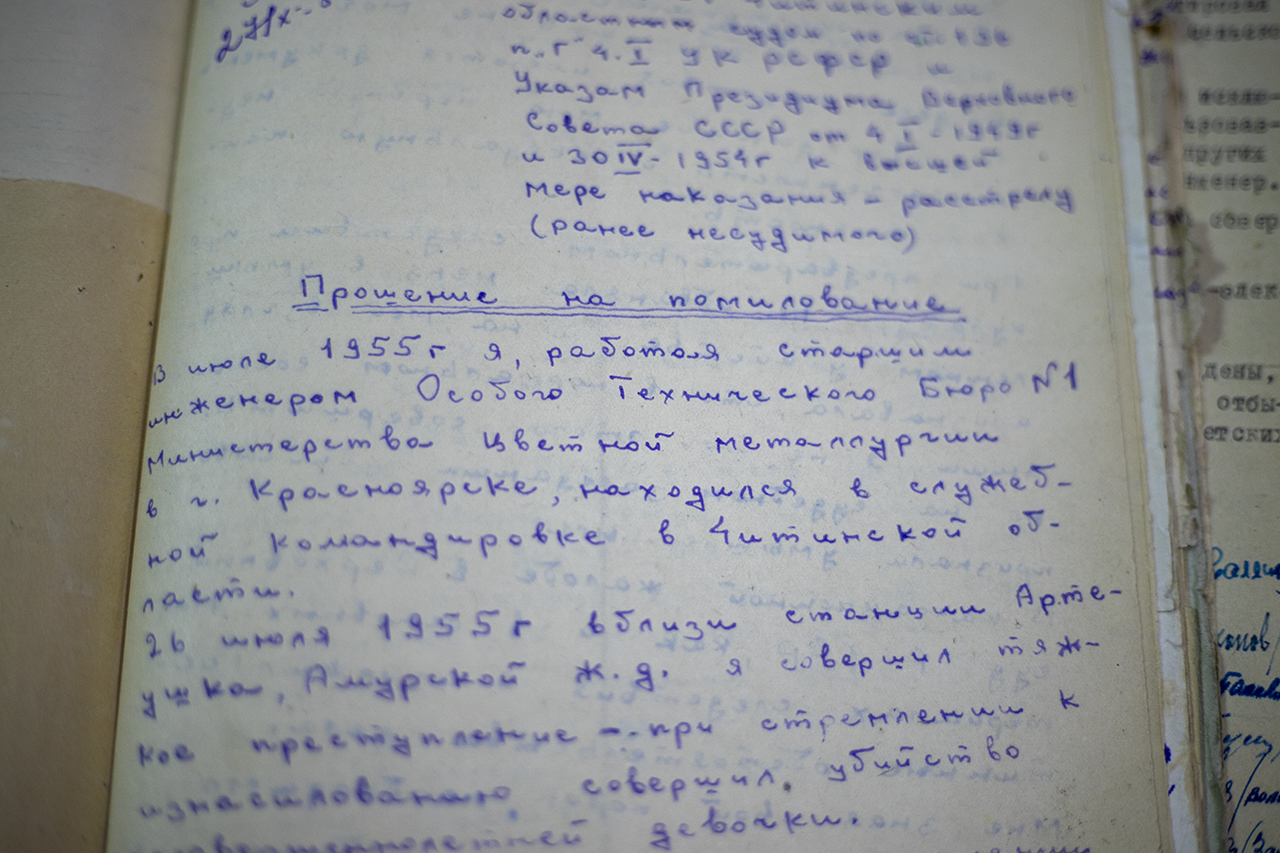 областным судом по
п. "Г" Ч. I УК РСФСР и
Указам Президиума Верховного
Совета СССР от 4 I - 1949 г
и 30 IV - 1954 г к высшей
мере наказания - расстрелу
(ранее несудимого)
Прошение на помилование
В июле 1955 г я, работая старшим
инженером Особого Технического Бюро N1
Министерства Цветной металлургии
в г. Красноярске, находился в служеб-
ной командировке в Читинской об-
ласти.
26 июля 1955 г вблизи станции Арте-
ушка, Амурской ж.д. я совершил тяж-
кое преступление - при стремлении к
изнасилованию совершил убийство
девочки.
других
дены,
отбы-
етских